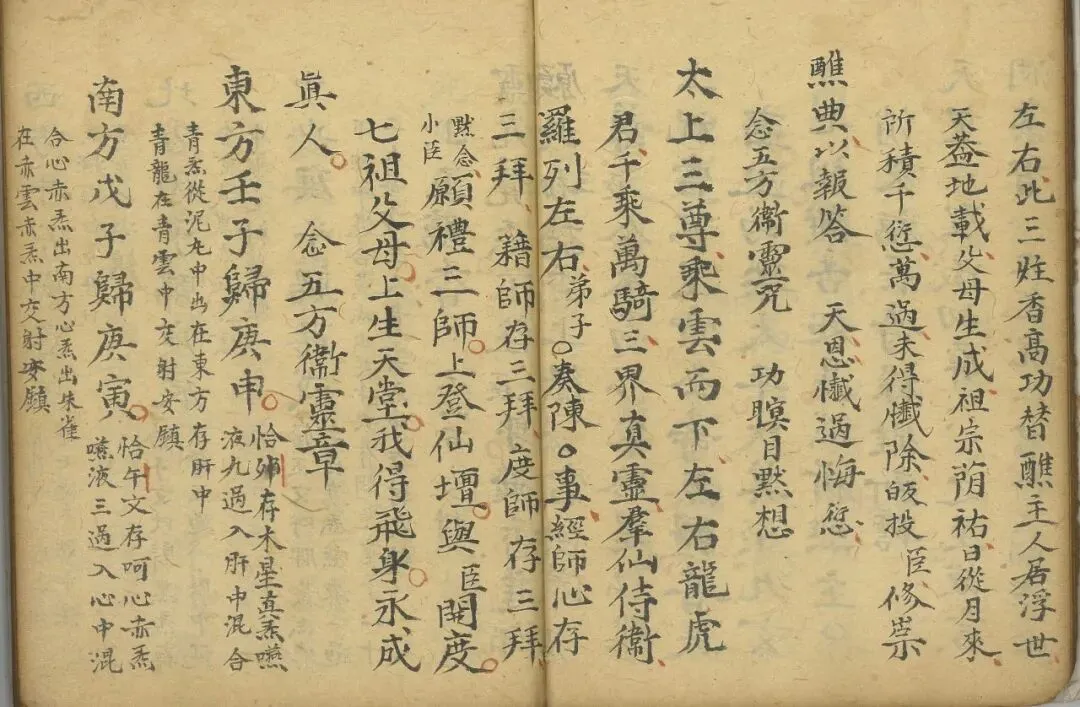 左右此三炷香高功替醮主人居浮世
天蓋地載父母生成祖宗荫祐日從月來
所積千愆萬過未得懺除皈投臣修崇
醮典以報答　天恩懺過悔愆
念五方衛靈咒　功瞑目默想
太上三尊乘雲而下左右龍虎
君千乘萬騎三界真靈羣仙侍衞
羅列左右弟子奏陳事經師心存
三拜　籍師存三拜度師存三拜
默念小臣願禮三師上登仙壇與臣開度
七祖父母上生天堂我得飛身永成
真人　念五方衞靈章
東方壬子歸庚申恰卯存木星真炁嚥
液九過入肝中混合
青炁從泥丸中出在東方存肝中
青龍在青雲中交射安鎮
南方戊子歸庚寅恰午文存呵心赤炁
嚥液三過入心中混
合心赤炁出南方心炁出朱雀
在赤雲赤炁中交射安鎮